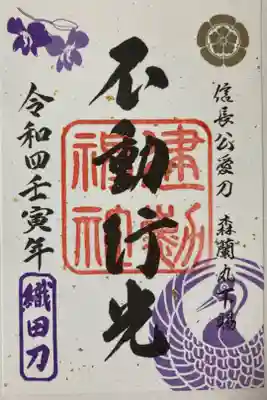 信長公愛刀 森蘭丸下賜
不動行光
建勲
神社
令和四壬寅年
織田刀